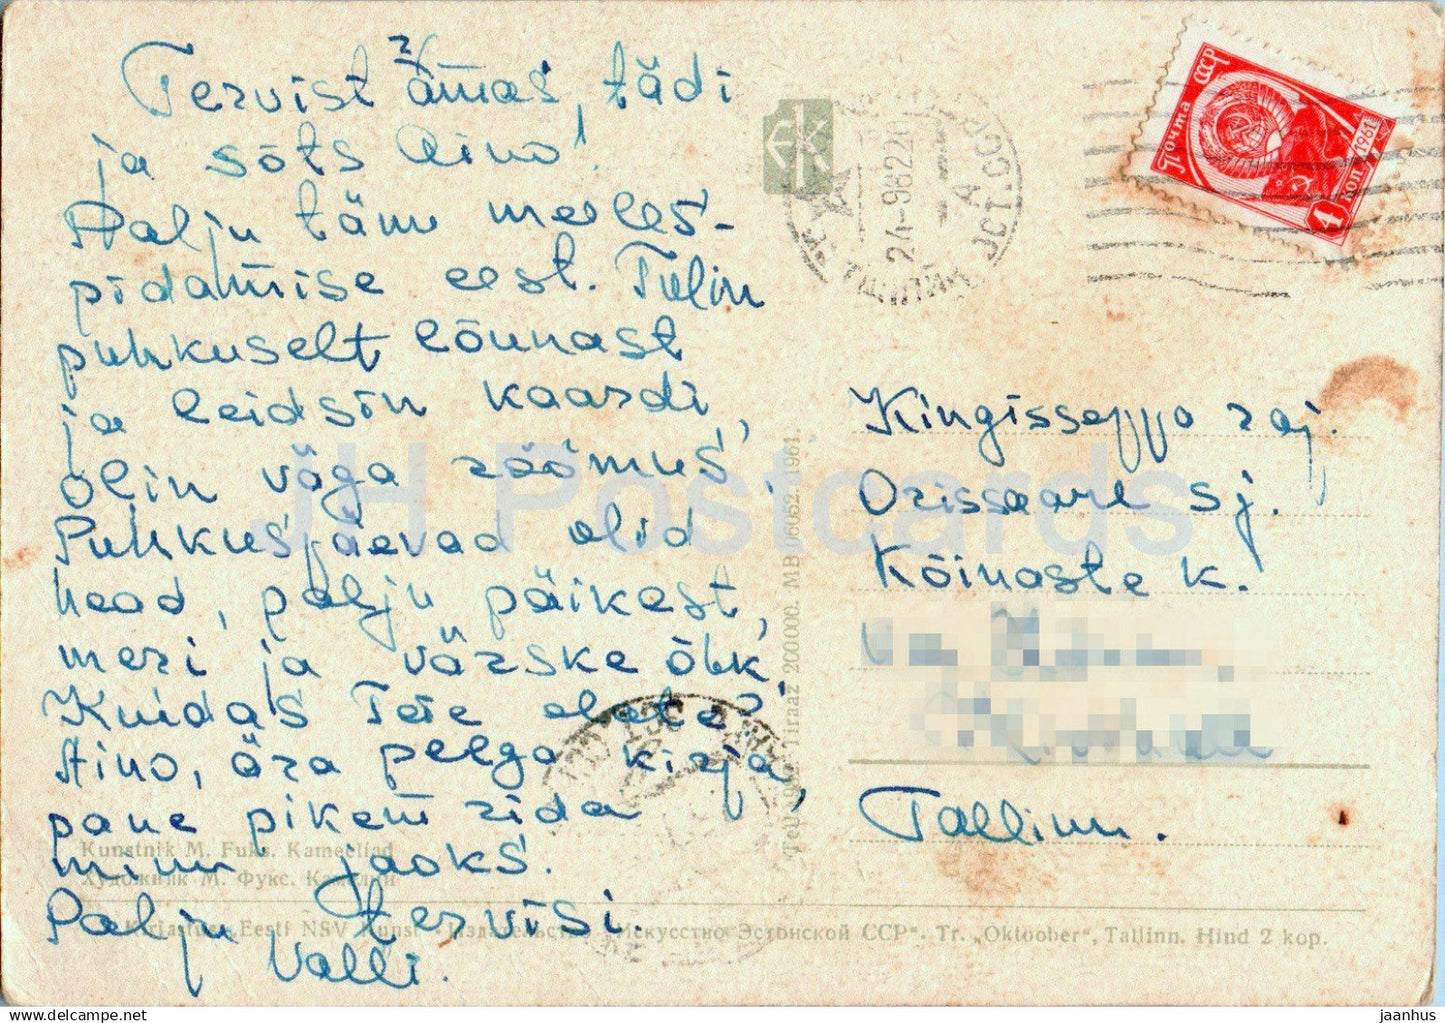 Tervist ämas, tädi
ja sõts Aino!
Palju tänu meeles-
pidamise eest. Tulin
puhkuselt lõunast
ja leidsin kaardi,
olin väga rõõmus,
Puhkuspäevad olid
head, palju päikest,
meri ja värske õhk,
Kuidas Teie elate?
Aino, ära pelga kirja,
pane pikem rida
minu jaoks.
Palju tervisi.
Valli.
Kunstnik M. Fuks. Kameeliad
Художник М. Фукс. Камелии
EK
Почта СССР
1961
4 КОП
24-9 622 20
ТАЛЛИН
Kingissepp raj.
Orissaare sj.
Kõinaste k.
Tallinn.
Tiraaz 200000. MB 06052. 1961.
Kirjastus „Eesti NSV Kunst" Издательство „Искусство Эстонской ССР". Tr. „Oktoober", Tallinn. Hind 2 kop.
JH Postcards
jaanhus